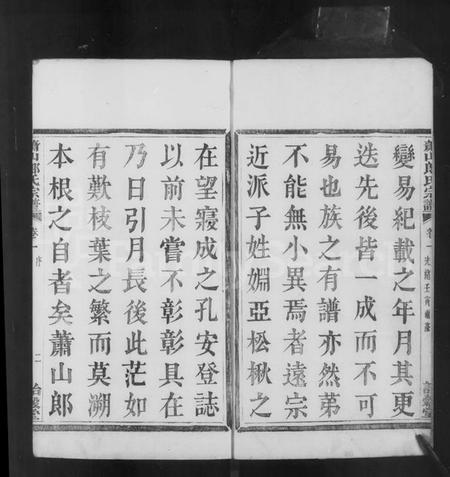 蕭山郎氏宗譜 卷一 光緒壬寅重修
變易紀載之年月其更
迭先後皆一成而不可
易也族之有譜亦然第
不能無小異焉者遠宗
近派子姓婣亞松楸之
在望寢成之孔安登誌
以前未嘗不彰彰具在
乃日引月長後此茫如
有歎枝葉之繁而莫溯
本根之自者矣蕭山郎
蕭山郎氏宗譜 卷一 序 二